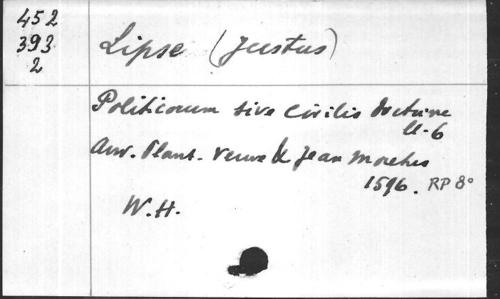 452
393
2
Lipse (Justus)
Politicorum sive Civilis doctrine
ll-6
Anv. Plant. Veuve & Jean Moretus
1596. RP 8°
W.H.